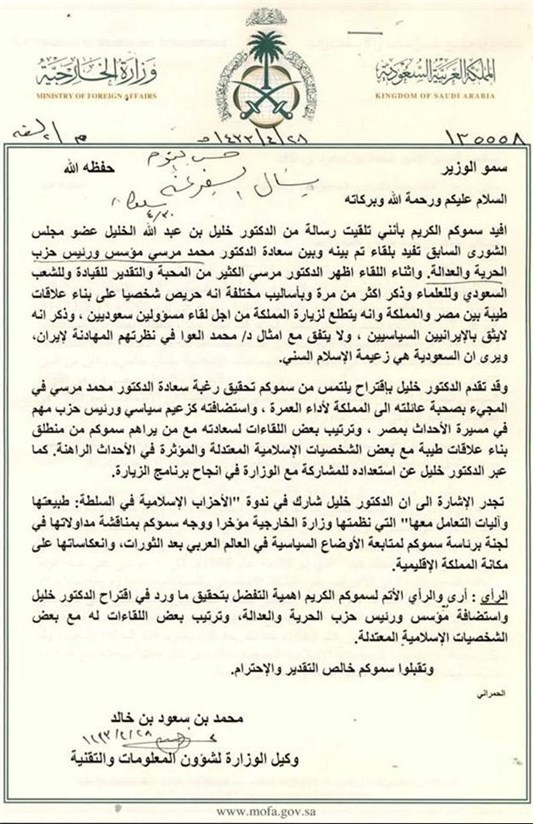 المملكة العربية السعودية
KINGDOM OF SAUDI ARABIA
وزارة الخارجية
MINISTRY OF FOREIGN AFFAIRS
١٣٥٥٥٨
١٤٣٣/٤/٢٨ هـ
سمو الوزير حفظه الله
السلام عليكم ورحمة الله وبركاته
يسأل السفير عنه
افيد سموكم الكريم بأنني تلقيت رسالة من الدكتور خليل بن عبد الله الخليل عضو مجلس
الشورى السابق تفيد بلقاء تم بينه وبين سعادة الدكتور محمد مرسي مؤسس ورئيس حزب
الحرية والعدالة. واثناء اللقاء اظهر الدكتور مرسي الكثير من المحبة والتقدير للقيادة وللشعب
السعودي وللعلماء وذكر اكثر من مرة وبأساليب مختلفة انه حريص شخصيا على بناء علاقات
طيبة بين مصر والمملكة وانه يتطلع لزيارة المملكة من اجل لقاء مسؤولين سعوديين ، وذكر انه
لايثق بالإيرانيين السياسيين ، ولا يتفق مع امثال د/ محمد العوا في نظرتهم المهادنة لإيران،
ويرى ان السعودية هي زعيمة الإسلام السني.
وقد تقدم الدكتور خليل بإقتراح يلتمس من سموكم تحقيق رغبة سعادة الدكتور محمد مرسي في
المجيء بصحبة عائلته الى المملكة لأداء العمرة ، واستضافته كزعيم سياسي ورئيس حزب مهم
في مسيرة الأحداث بمصر ، وترتيب بعض اللقاءات لسعادته مع من يراهم سموكم من منطلق
بناء علاقات طيبة مع بعض الشخصيات الإسلامية المعتدلة والمؤثرة في الأحداث الراهنة. كما
عبر الدكتور خليل عن استعداده للمشاركة مع الوزارة في انجاح برنامج الزيارة.
تجدر الإشارة الى ان الدكتور خليل شارك في ندوة "الأحزاب الإسلامية في السلطة: طبيعتها
وآليات التعامل معها" التي نظمتها وزارة الخارجية مؤخرا ووجه سموكم بمناقشة مداولاتها في
لجنة برئاسة سموكم لمتابعة الأوضاع السياسية في العالم العربي بعد الثورات، وانعكاساتها على
مكانة المملكة الإقليمية.
الرأي : أرى والرأي الأتم لسموكم الكريم اهمية التفضل بتحقيق ما ورد في اقتراح الدكتور خليل
واستضافة مؤسس ورئيس حزب الحرية والعدالة، وترتيب بعض اللقاءات له مع بعض
الشخصيات الإسلامية المعتدلة.
وتقبلوا سموكم خالص التقدير والإحترام.
الحمراني
محمد بن سعود بن خالد
١٤٣٣/٤/٢٨
وكيل الوزارة لشؤون المعلومات والتقنية
www.mofa.gov.sa